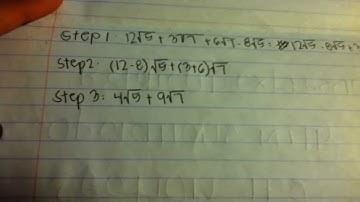 Step 1: 12√5 + 3√7 + 6√7 - 8√5 = 12√5 - 8√5 + 3
Step 2: (12-8)√5 + (3+6)√7
Step 3: 4√5 + 9√7